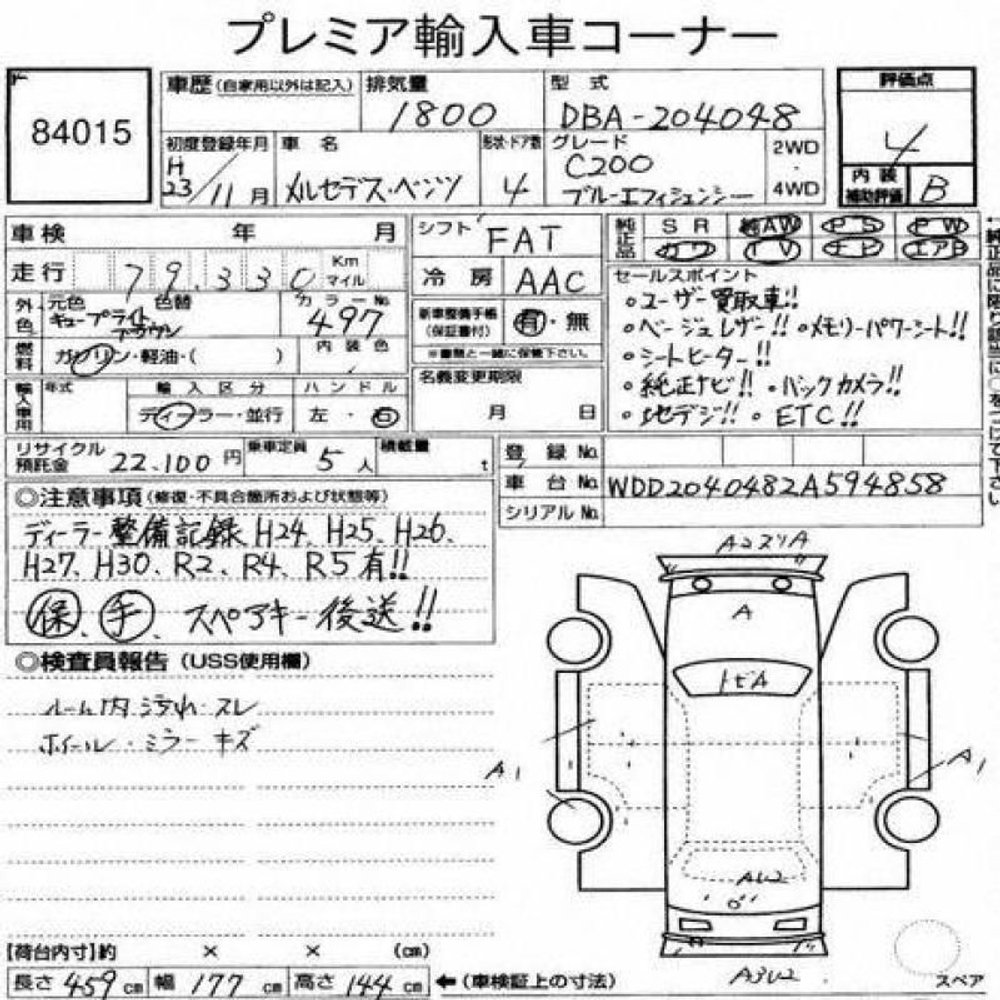 プレミア輸入車コーナー
84015
車歴(自家用以外は記入) 排気量 型式 評価点
1800 DBA-204048 4
初度登録年月 車名 形状・ドア数 グレード 2WD・4WD
H23/11月 メルセデス・ベンツ 4 C200 ブルーエフィシェンシー
内装補助評価 B
車検 年 月 シフト FAT 純正品 SR 純AW PS PW
カワ TV ナビ エアB
走行 79,330 Km マイル 冷房 AAC
外色 元色 キュープライトブラウン 色替 カラーNo. 497
新車整備手帳(保証書付) 有・無
※書類と一緒に保管下さい。
燃料 ガソリン・軽油・( ) 内装色
セールスポイント
○ユーザー買取車!!
○ベージュレザー!! ○メモリーパワーシート!!
○シートヒーター!!
○純正ナビ!! ○バックカメラ!!
○地デジ!! ○ETC!!
輸入車用 年式 輸入区分 ハンドル 名義変更期限
ディーラー・並行 左・右 月 日
リサイクル預託金 22,100円 乗車定員 5人 積載量 t
登録No.
車台No. WDD2040482A594858
シリアルNo.
◎注意事項(修復・不具合箇所および状態等)
ディーラー整備記録 H24、H25、H26、
H27、H30、R2、R4、R5有!!
保、手、スペアキー後送!!
◎検査員報告(USS使用欄)
ルーム内汚れ・スレ
ホイール・ミラーキズ
A2スリA
A
トビA
A1
A1
AU2
A3U2
スペア
【荷台内寸】約 × × (cm)
長さ 459cm 幅 177cm 高さ 144cm ←(車検証上の寸法)